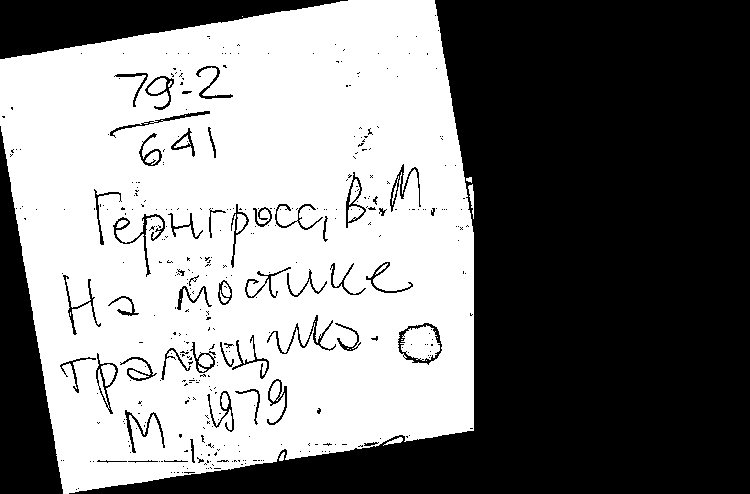 79-2
641
Гернгросс, В.М.
На мостике
тральщика.
М., 1979.